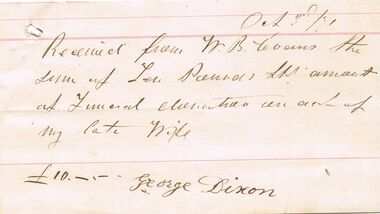 Oct 3rd/71
Received from W. B. Evans the
sum of Ten Pounds Stg amount
of Funeral donation on act of
my late Wife
£10.-.- George Dixon